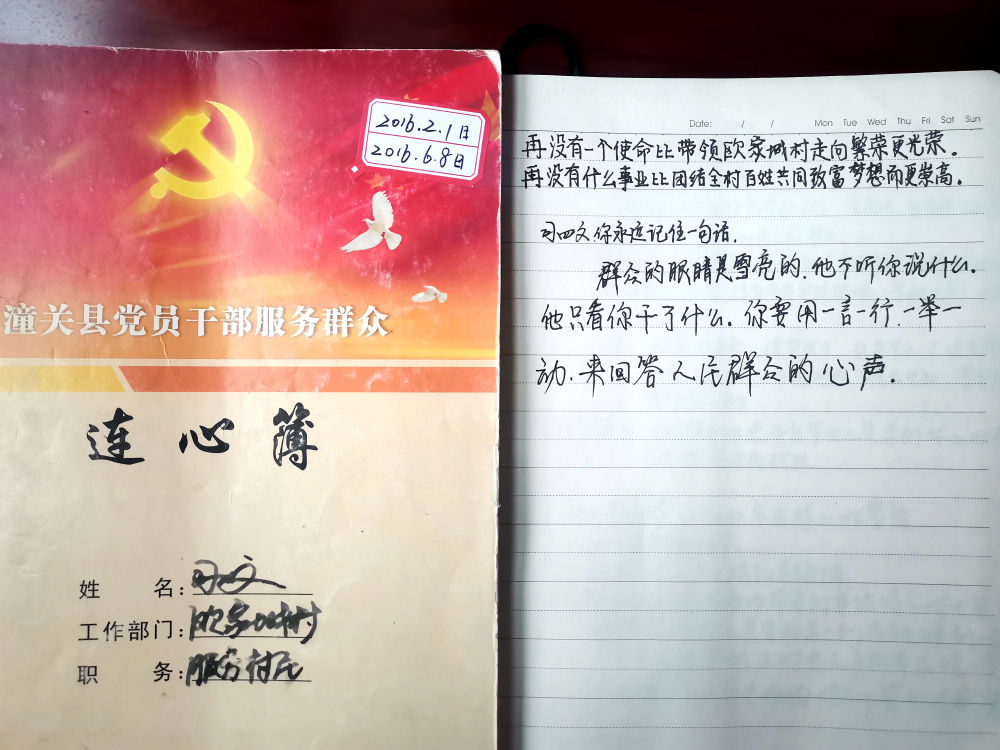 2016.2.1日
2016.6.8日
潼关县党员干部服务群众
连心簿
姓 名:习四文
工作部门:欧家城村
职 务:服务村民
Date: / / Mon Tue Wed Thu Fri Sat Sun
再没有一个使命比带领欧家城村走向繁荣更光荣。
再没有什么事业比团结全村百姓共同致富梦想而更崇高。
习四文你永远记住一句话,
群众的眼睛是雪亮的.他不听你说什么。
他只看你干了什么。你要用一言一行.一举一
动.来回答人民群众的心声。